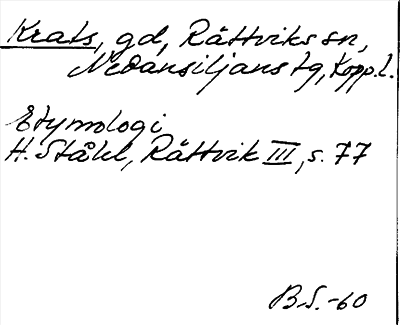 Krats, gd, Rättviks sn,
Nedansiljans tg, Kopp.l.
Etymologi
H. Ståhl, Rättvik III, s. 77
B.S. -60